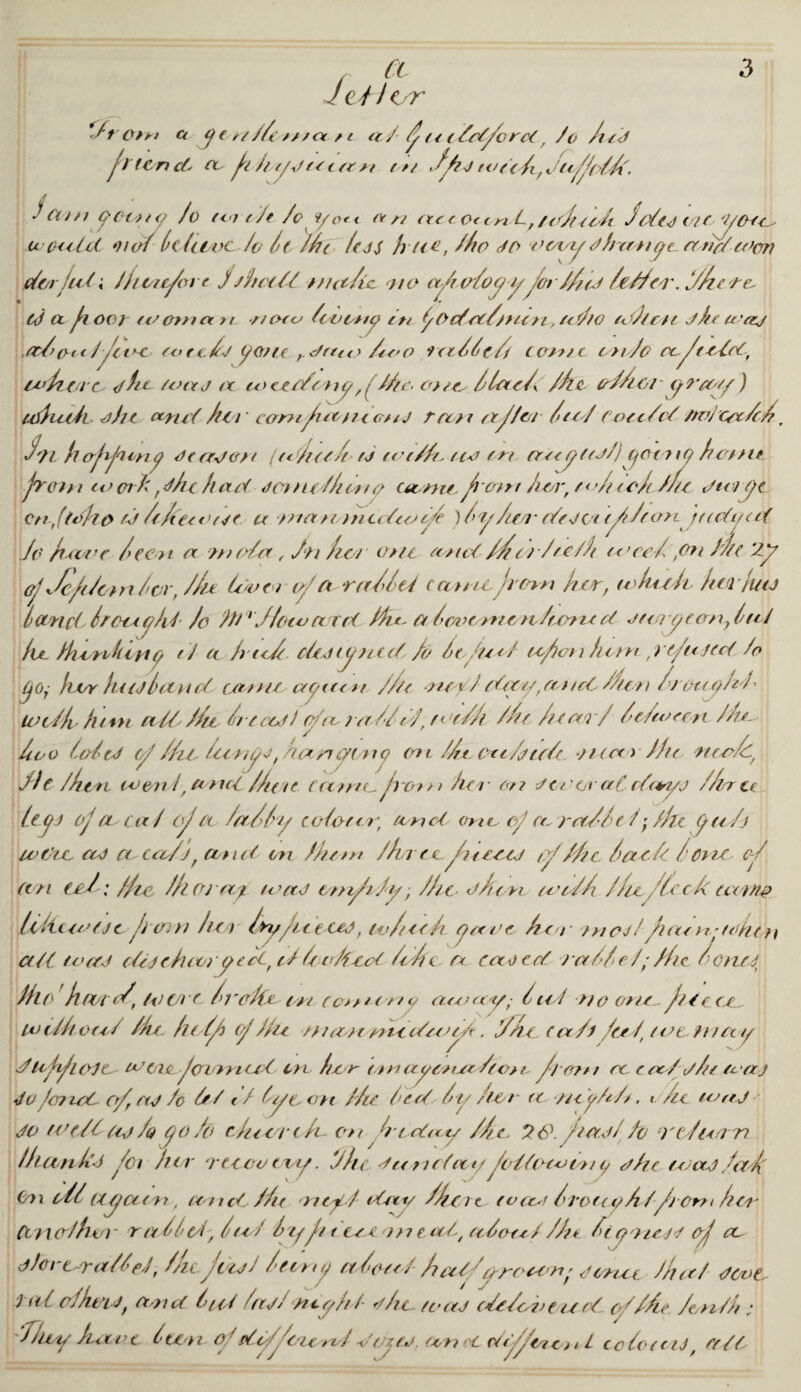 3
A
Letter
From a gentleman at Guildford, to his
friend a physician in Ipswich, Suffolk.
I am going to write to you an account, which I des ire you
would not believe to be the less true, tho so very strange and won
derful; therefore I shall make no apology for this letter. There
is a poor woman now living in Godalmin, who when she was
about five weeks gone, saw two rabbets come into a field,
where she was a weeding, (the one black the other gray)
which she and her companions ran after but could not catch.
In hopping season (which is with us in august) going home
from work, she had something came from her, which the surge
on, (who is likewise a man midwife) by her description judged
to have been a mola, In her one and thirtieth week, on the 27
of September, the liver of a rabbet came from her, which her hus
band brought to Mr Howard the abovementioned surgeon, but
he thinking it a trick designed to be put upon him, refused to
go; her husband came again the next day, and then brought
with him all the breast of a rabbit, with the heart between the
two lobes of the lungs, hanging on the outside near the neck,
He then went, and there came from her on several days three
legs of a cat of a tabby colour, and one of a rabbet; the guts
were as a cat's, and in them three pieces of the back bone of
an eel; the thorax was empty; the skin with the fleck came
likewise from her by pieces, which gave her most pain; when
all was discharged, it looked like a cased rabbet; the bones,
tho' hard, were broke in coming away; but no one piece
without the help of the man midwife. The cat's feet, we may
suppose were formed in her imagination from a cat she was
so fond of, as to let it lye on the bed by her a nights. She was
so well as to go to church on friday the 28. past to return
thanks for her recovery. The sunday following she was tak
en ill again, and the next day there was brought from her
another rabbet, but by piece meal, about the bigness of a
store rabbet, the first being about half grown; since that seve
ral others, and but last night she was delivered of the tenth:
They have been of different sizes, and different colours, all